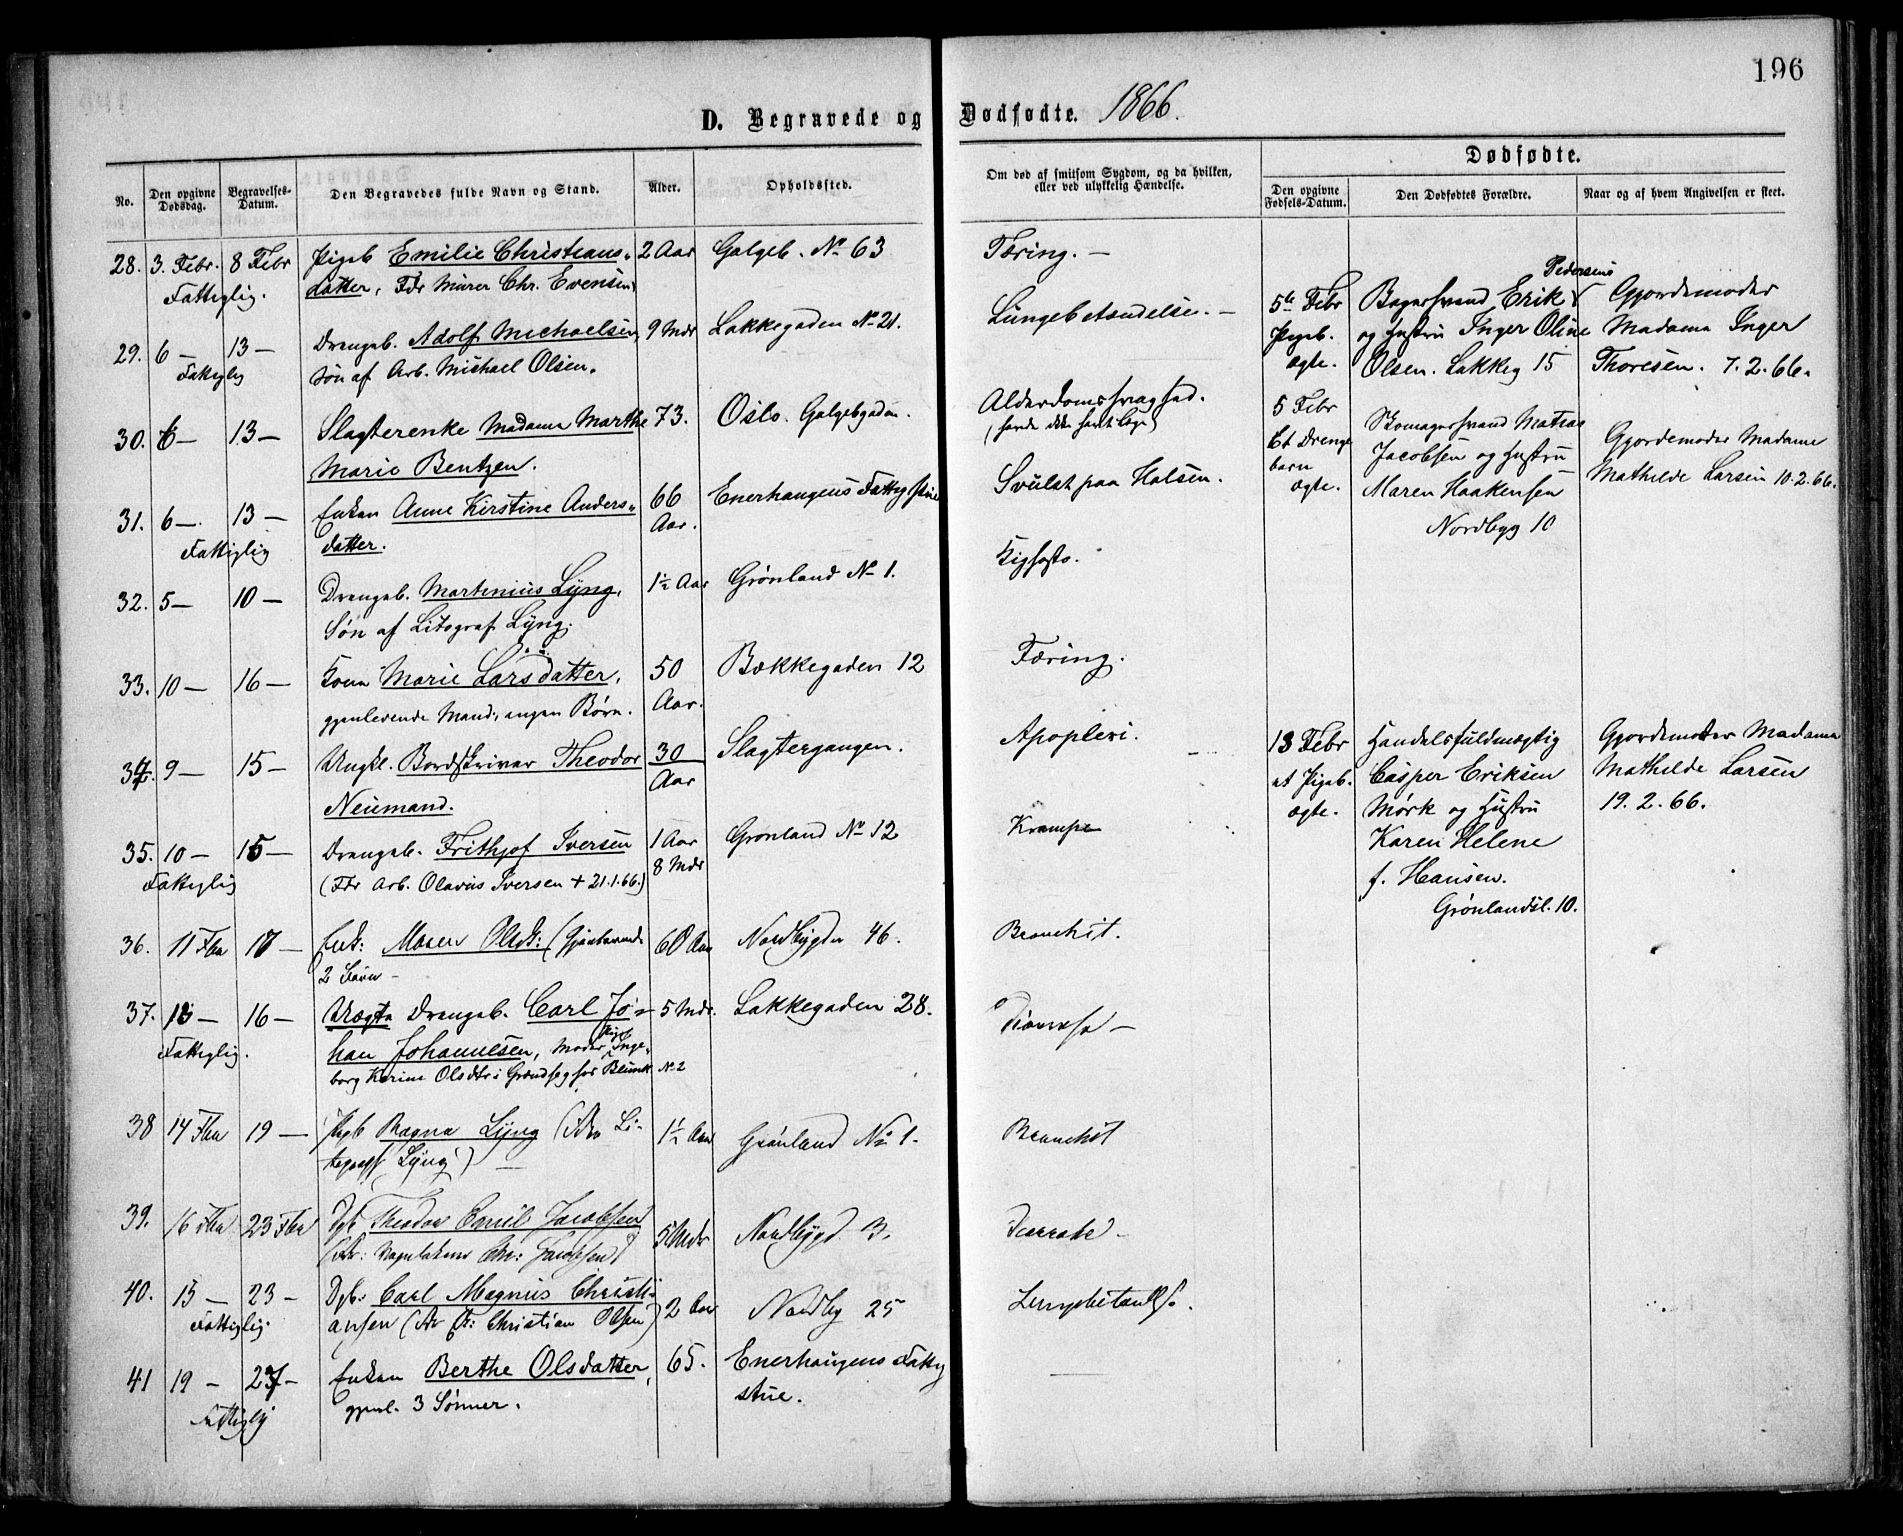 196
D. Begravede og Dødfødte. 1866.
No.
Den opgivne Dødsdag.
Begravelses-Datum.
Den Begravedes fulde Navn og Stand.
Alder.
Opholdssted.
Om død af smitsom Sygdom, og da hvilken, eller ved ulykkelig Hændelse.
Dødfødte.
Den opgivne Fødsels-Datum.
Den Dødfødtes Forældre.
Naar og af hvem Angivelsen er skeet.
28. 3. Febr. 8 Febr Pigeb Emilie Christians- 2 Aar Galgeb. No 63 Tæring. —
Fattiglig. datter, Fdr Murer Chr. Evensen
29. 6 — 13 — Drengeb. Adolf Michaelsen, 9 Mdr Lakkegaden No 21. Lungebetændelse. —
Fattiglig Søn af Arb. Michael Olsen.
30. 6 — 13 — Slagterenke Madame Marthe 73. Oslo. Galgebgaden. Alderdomssvaghed.
Marie Bentzen. (havde ikke havt Læge)
31. 6 — 13 — Enken Anne Kirstine Anders- 66 Aar. Enerhaugens Fattigstue Svulst paa Halsen.
Fattiglig datter.
32. 5 — 10 — Drengeb. Martinius Lyng, 1½ Aar Grønland No 1. Kighoste.
Søn af Litograf Lyng.
33. 10 — 16 — Kone Marie Larsdatter, 50 Aar. Bækkegaden 12 Tæring.
gjenlevende Mand, ingen Børn.
34. 9 — 15 — Ungk. Bordskriver Theodor 30 Aar Slagtergangen. Apoplexi.
Neumand.
35. 10 — 15 — Drengeb. Frithjof Iversen 1 Aar 8 Mdr Grønland No 12 Krampe
Fattiglig (Fdr Arb. Olavus Iversen + 21.1.66.)
36. 11 Fbr 17 — Enk: Maren Olsdt: (Gjenlevende 60 Aar Nordbygdn 46. Bronchit.
2 Børn —
37. 13 — 16 — Uægte Drengeb. Carl Jo- 5 Mdr. Lakkegaden 28.
Fattiglig. han Johannesen, Moder Pige Inge-
borg Karine Olsdtr i Grændseg hos Blunck No 2
38 14 Fbr 19 — Pigb Ragna Lyng (Fdr Li- 1½ Aar Grønland No 1. Bronchit
tograf Lyng) —
39. 16 Fbr 23 Fbr Dgb Theodor Emil Jacobsen 5 Mdr Nordbygd 3.
40. 15 — 23 — Dgb: Carl Magnus Christi- 2 Aar Nordby 25 Lungebetændelse.
Fattiglig. ansen (Fdr Christian Olsen)
41 19 — 27 — Enken Berthe Olsdatter, 65. Enerhaugens Fattig
Fattiglig gjenl. 3 Sønner. stue.
5te Febr Bagersvend Erik Pedersens Gjordemoder
Pigeb. og Hustru Inger Oline Madame Inger
ægte. Olsen. Lakkeg 15 Thoresen. 7.2.66.
5 Febr Skomagersvend Matias Gjordemoder Madame
Et Drenge Jacobsen og Hustru Mathilde Larsen 10.2.66.
barn Maren Haakensen
ægte. Nordbyg 10
13 Febr Handelsfuldmægtig Gjordemoder Madame
et Pigeb. Casper Eriksen Mathilde Larsen
ægte. Mørk og Hustru 19.2.66.
Karen Helene
f. Hansen.
Grønlandsl. 10.